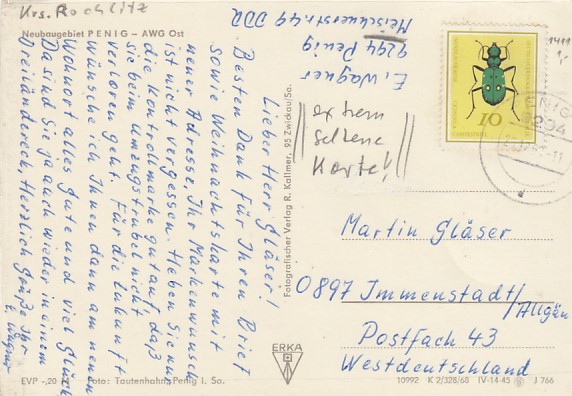 Krs. Rochlitz
Neubaugebiet PENIG – AWG Ost
E. Wagner
9294 Penig
DDR
Lieber Herr Gläser!
Besten Dank für Ihren Brief
sowie Weihnachtskarte mit
neuer Adresse, Ihr Markenwunsch
ist nicht vergessen. Heben Sie nur
die Kontrollmarke gut auf, daß
sie beim Umzugstrudel nicht
verloren geht. Für die Zukunft
wünsche ich Ihnen dann am neuen
Wohnort alles gute und viel Glück
Da sind Sie ja auch wieder in einem
Dreiländereck, Herzlich Grüße Ihr
E. Wagner
EVP -,20 M Foto: Tautenhahn, Penig i. Sa.
Fotografischer Verlag R. Kallmer, 95 Zwickau/Sa.
extrem
seltene
Karte!
ERKA
10
1411
1,-
9294
Martin Gläser
0897 Immenstadt/
/Allgäu
Postfach 43
Westdeutschland
10992 K 2/328/68 IV-14-45 J 766